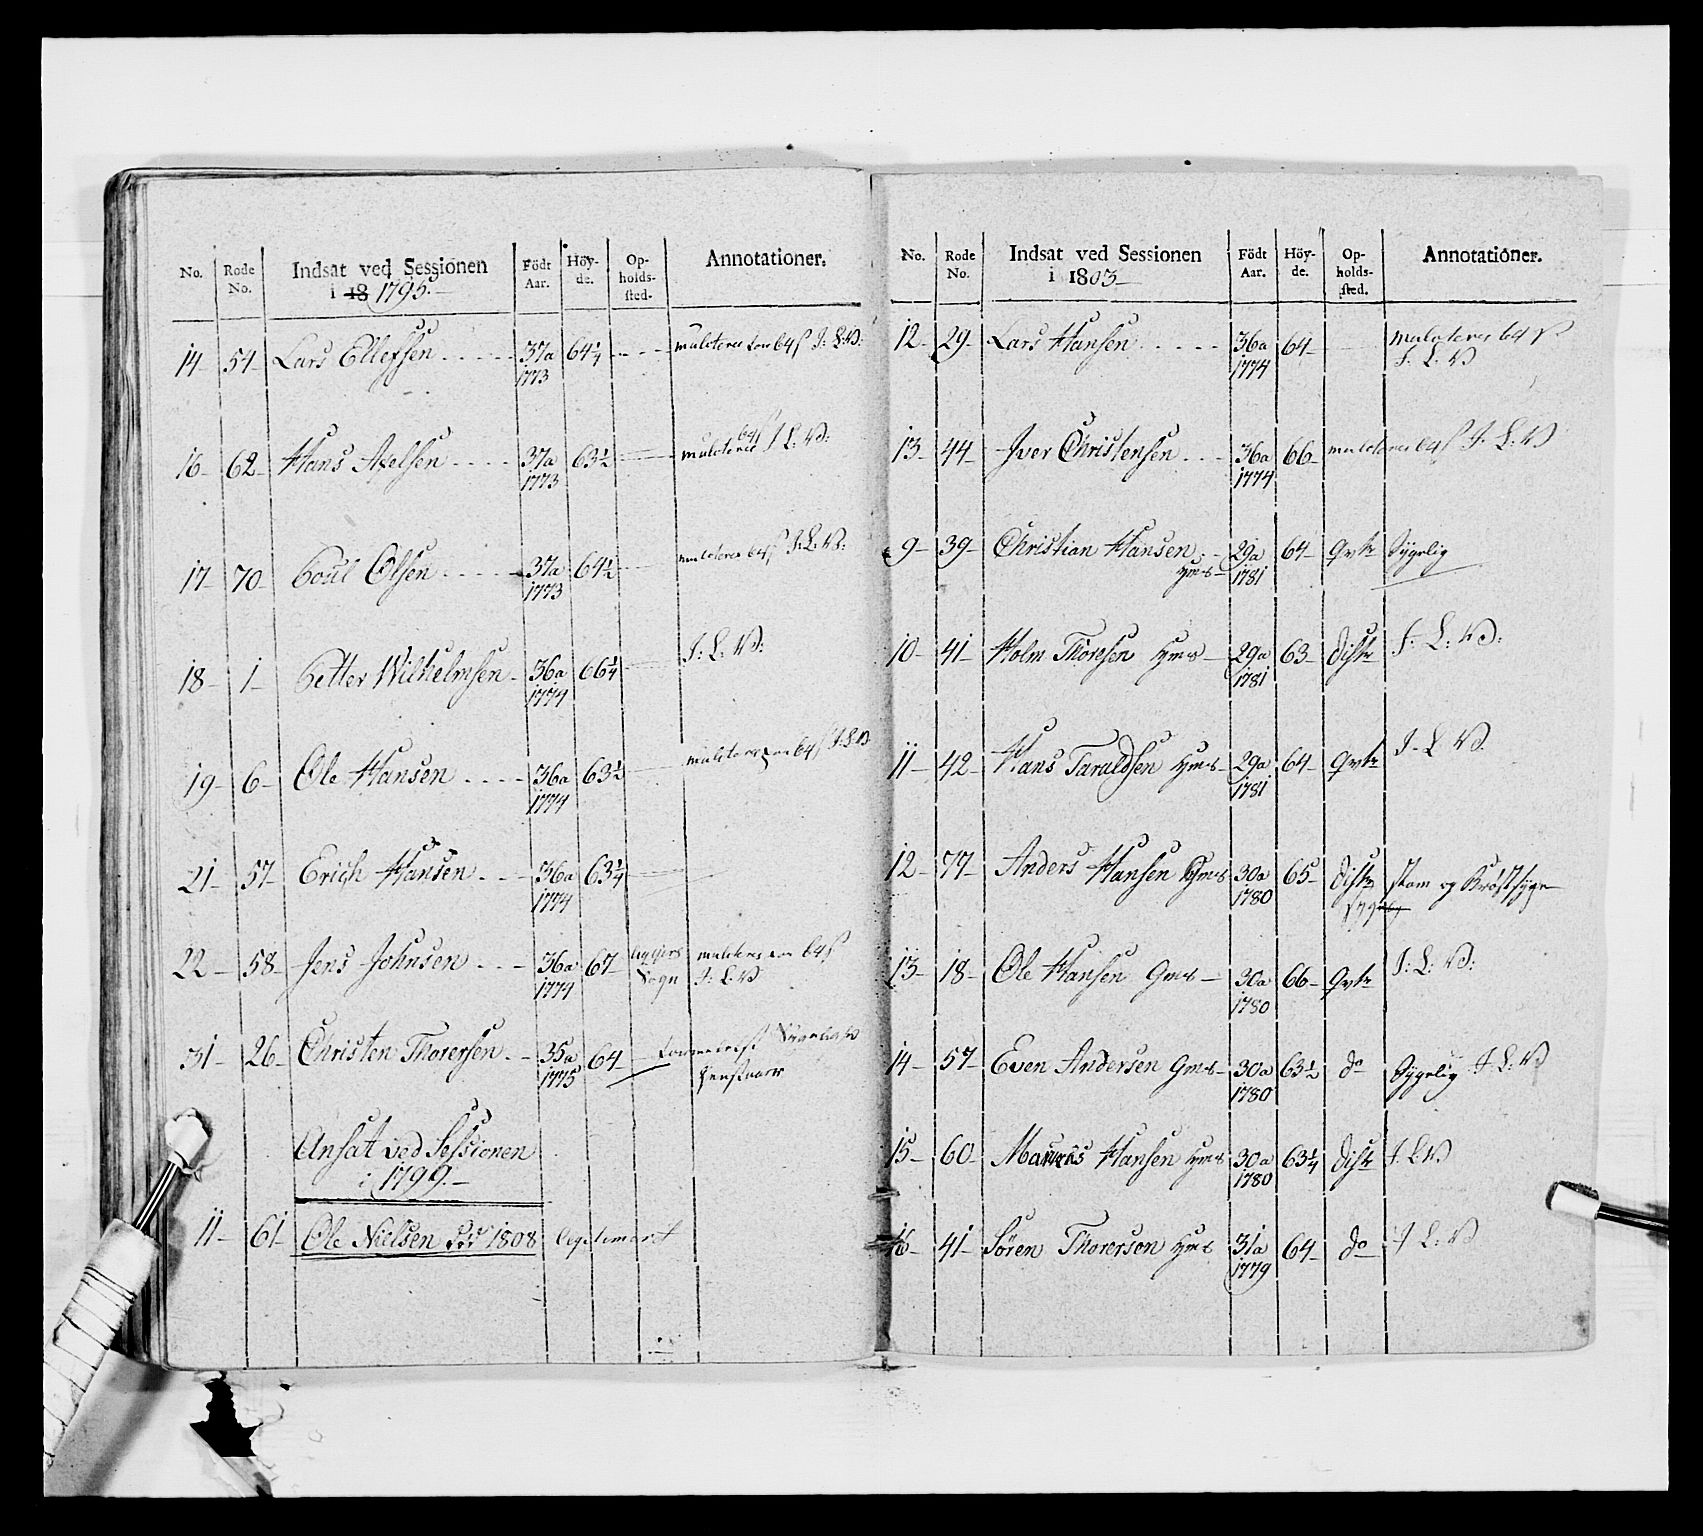 No. Rode No. Indsat ved Sessionen i 18 1795. Födt Aar. Höyde. Opholdssted. Annotationer.
14 54 Lars Ellefsen 37a 1773 64 1/4 64 J: L: V:
16 62 Hans Axelsen 37a 1773 63 1/2 64 J L: V:
17 70 Poul Olsen 37a 1773 64 1/2 64 J: L: V:
18 1 Petter Wilhelmsen 36a 1774 66 1/4 J: L: V:
19 6 Ole Hansen 36a 1774 63 1/2 64 J L V
21 57 Erich Hansen 36a 1774 63 1/4
22 58 Jens Johnsen 36a 1774 67 Sogn 64 J: L: V
31 26 Christen Thorersen 35a 1775 64
Ansat ved Sessionen
i 1799.
11 61 Ole Nielsen död 1808
No. Rode No. Indsat ved Sessionen i 1803 Födt Aar. Höyde. Opholdssted. Annotationer.
12 29 Lars Hansen 36a 1774 64 64 J: L: V
13 44 Iver Christensen 36a 1774 66 64 J. L: V
9 39 Christian Hansen Hms 29a 1781 64 Qvtr Sygelig
10 41 Holm Thoresen Hms 29a 1781 63 Distr J: L: V:
11 42 Hans Taraldsen Hms 29a 1781 64 Qvtr J. L V.
12 77 Anders Hansen Hms 30a 1780 65 Distr stam og Bröstsyge
13 18 Ole Hansen Gms 30a 1780 66 Qvtr J: L: V:
14 57 Even Andersen Gms 30a 1780 63 1/2 do Sygelig J: L: V
15 60 Hansen Hms 30a 1780 63 1/4 Distr J L V
16 41 Sören Thorersen Hms 31a 1779 64 do J L: V